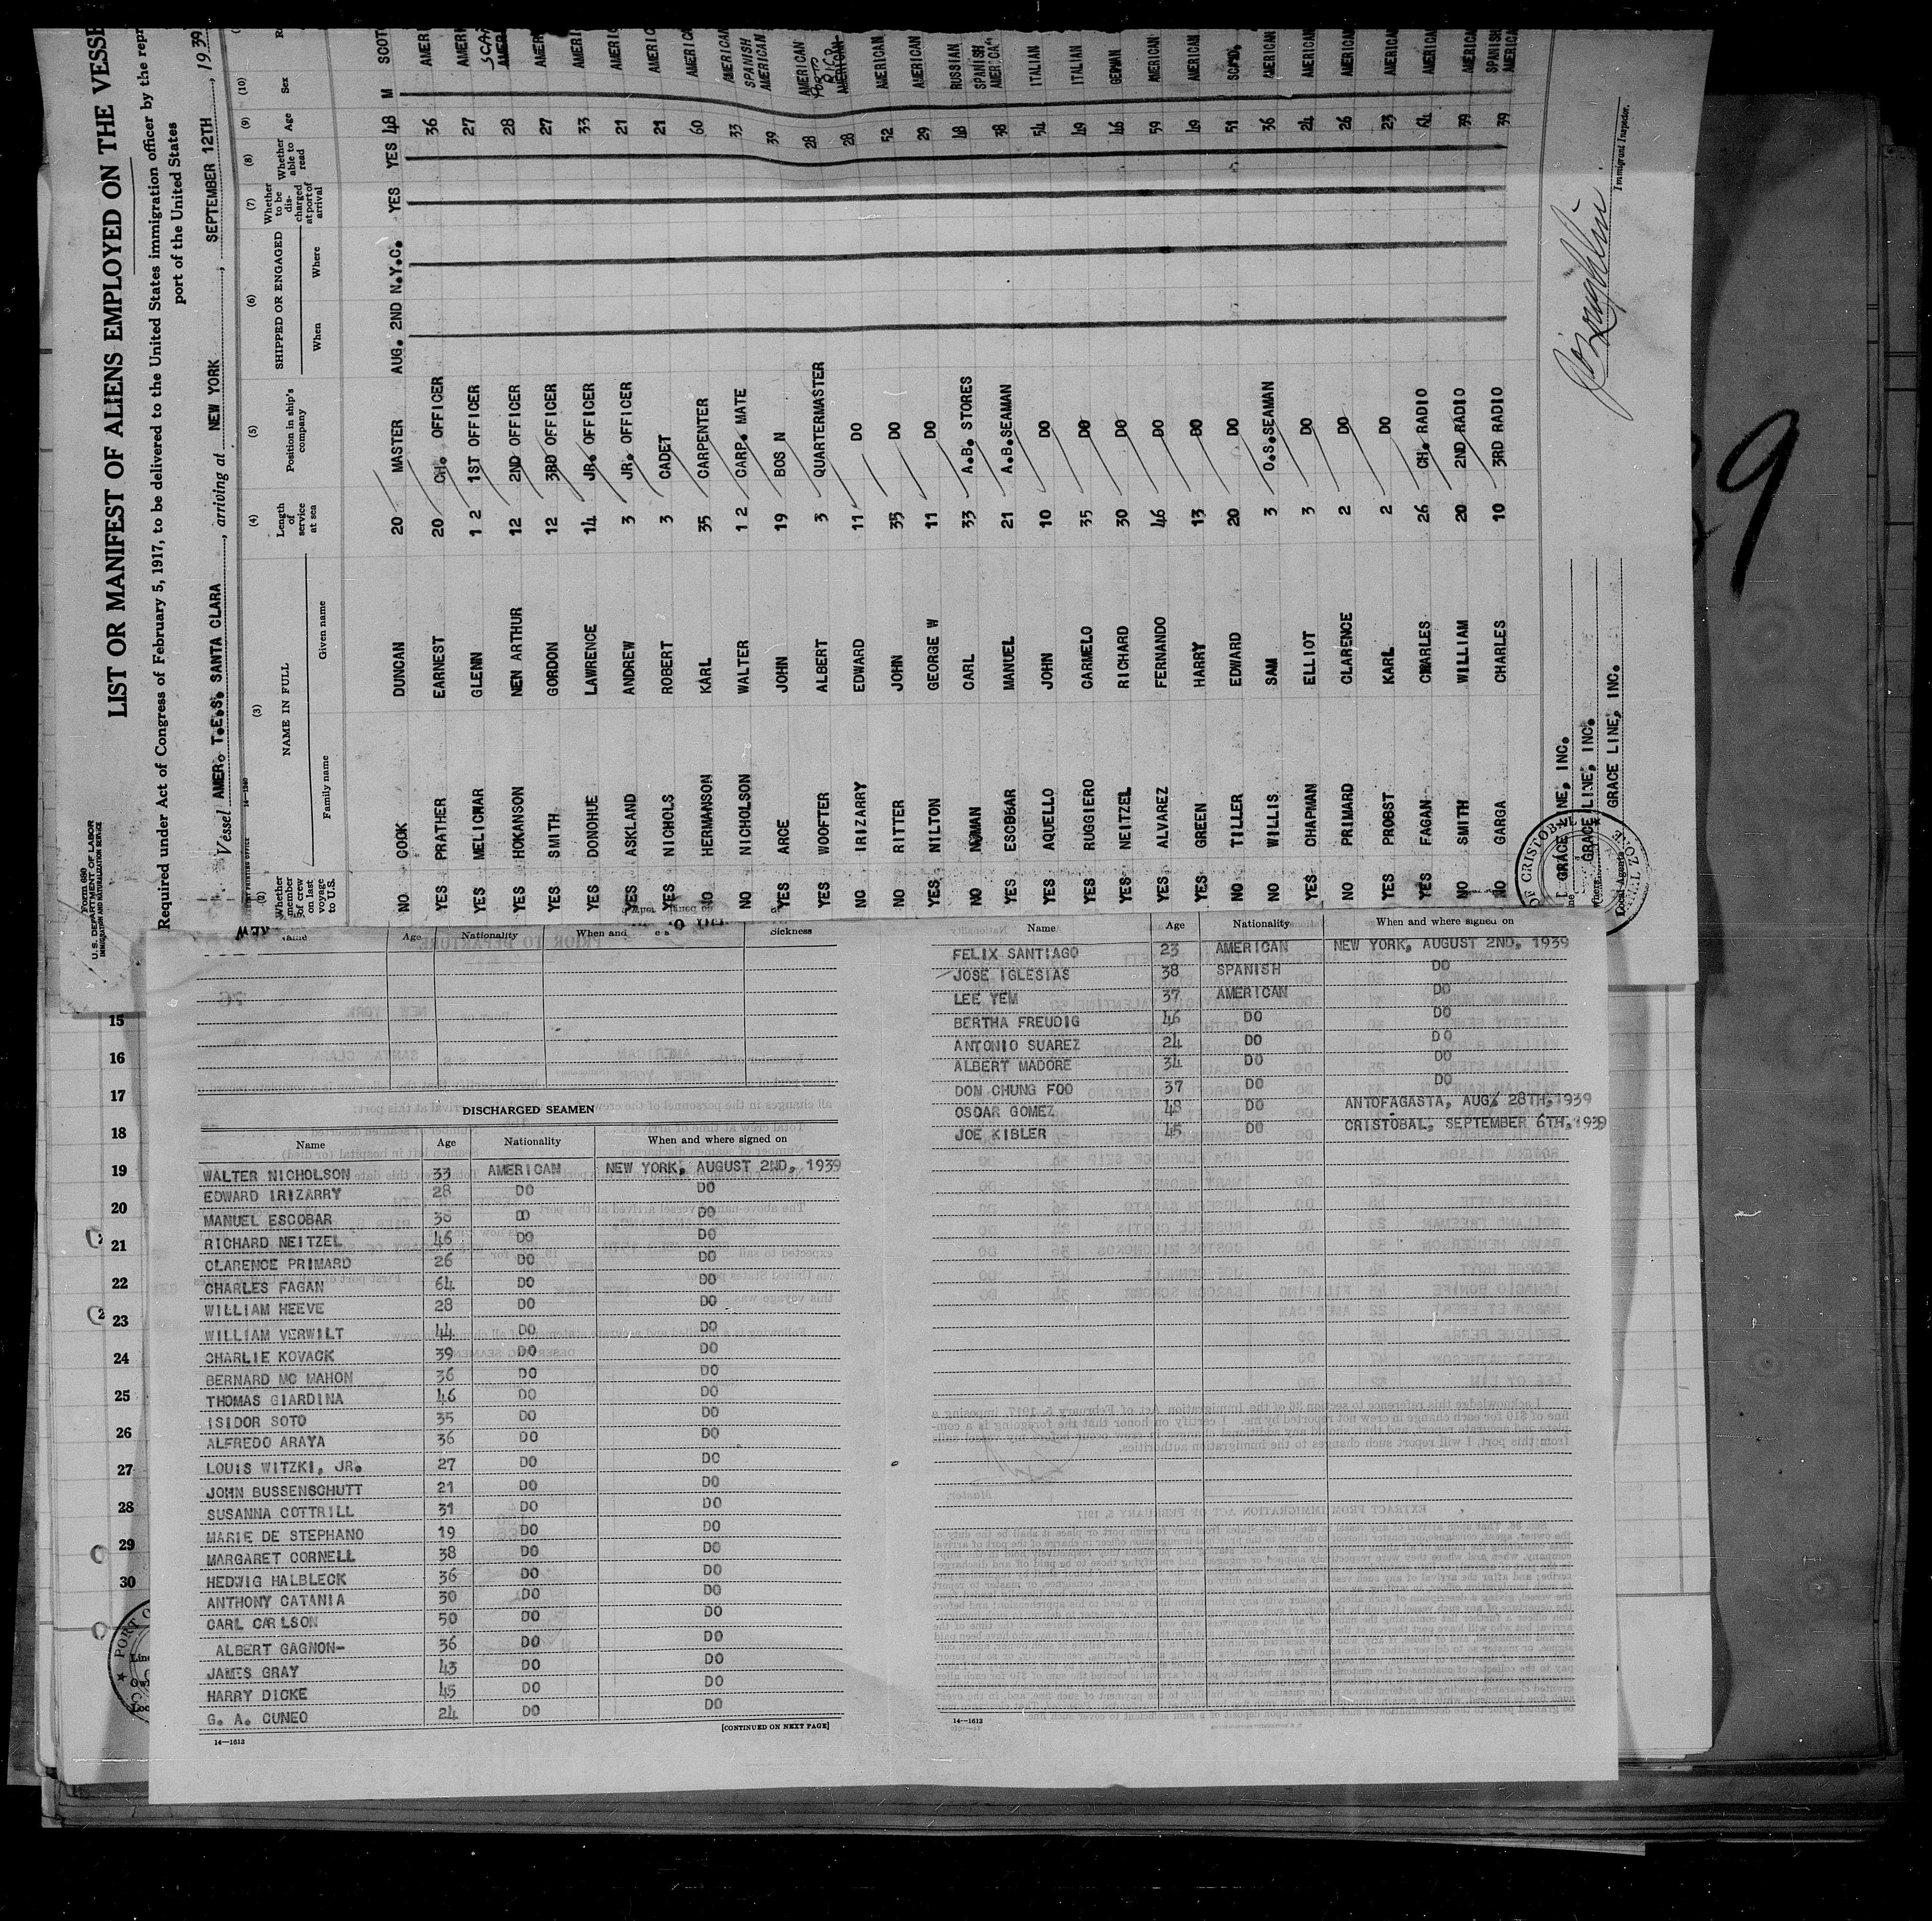 Form 680
U.S. DEPARTMENT OF LABOR
IMMIGRATION AND NATURALIZATION SERVICE
LIST OR MANIFEST OF ALIENS EMPLOYED ON THE VESSE
Required under Act of Congress of February 5, 1917, to be delivered to the United States immigration officer by the repr
port of the United States
Vessel AMER. T.E.S. SANTA CLARA, arriving at NEW YORK, SEPTEMBER 12TH, 1939
(2) (3) (4) (5) (6) (7) (8) (9) (10)
Whether member of crew on last voyage to U.S.
NAME IN FULL
Family name Given name
Length of service at sea
Position in ship's company
SHIPPED OR ENGAGED
When Where
Whether to be discharged at port of arrival
Whether able to read
Age
Sex
NO COOK DUNCAN 20 MASTER AUG. 2ND N.Y.C. YES YES 48 M SCOT
YES PRATHER EARNEST 20 CH. OFFICER 36 AMERI
YES MELICHAR GLENN 12 1ST OFFICER 27 AMERI
YES HOKANSON NEN ARTHUR 12 2ND OFFICER 28 SCAN AMER
YES SMITH GORDON 12 3RD OFFICER 27 AMER
YES DONOHUE LAWRENCE 14 JR. OFFICER 33 AMERI
YES ASKLAND ANDREW 3 JR. OFFICER 21 AMERIC
YES NICHOLS ROBERT 3 CADET 21 AMERIC
NO HERMANSON KARL 35 CARPENTER 60 AMERICA
NO NICHOLSON WALTER 12 CARP. MATE 33 AMERICAN
YES ARCE JOHN 19 BOS N 39 SPANISH AMERICAN
YES WOOFTER ALBERT 3 QUARTERMASTER 28 AMERICAN
NO IRIZARRY EDWARD 11 DO 28 PORTO RICO AMERICAN
NO RITTER JOHN 35 DO 52 AMERICAN
YES NILTON GEORGE W 11 DO 29 AMERICAN
NO NOMAN CARL 33 A.B. STORES 48 RUSSIAN
YES ESCOBAR MANUEL 21 A.B.SEAMAN 38 SPANISH AMERICA
YES AQUELLO JOHN 10 DO 54 ITALIAN
YES RUGGIERO CARMELO 35 DO 49 ITALIAN
YES NEITZEL RICHARD 30 DO 46 GERMAN
YES ALVAREZ FERNANDO 46 DO 59 AMERICAN
YES GREEN HARRY 13 DO 49 AMERICAN
NO TILLER EDWARD 20 DO 51 SCAND.
NO WILLIS SAM 3 O.S.SEAMAN 36 AMERICAN
YES CHAPMAN ELLIOT 3 DO 24 AMERICAN
NO PRIMARD CLARENCE 2 DO 26 AMERICA
YES PROBST KARL 2 DO 23 AMERICA
YES FAGAN CHARLES 26 CH. RADIO 64 AMERICA
NO SMITH WILLIAM 20 2ND RADIO 39 AMERICA
NO GARGA CHARLES 10 3RD RADIO 39 SPANISH AMERICA
GRACE LINE, INC.
GRACE LINE, INC.
Local Agents GRACE LINE, INC.
OF CRISTOBAL
Immigrant Inspector.
9
Name Age Nationality When and Sickness
DISCHARGED SEAMEN
Name Age Nationality When and where signed on
WALTER NICHOLSON 33 AMERICAN NEW YORK, AUGUST 2ND, 1939
EDWARD IRIZARRY 28 DO DO
MANUEL ESCOBAR 38 DO DO
RICHARD NEITZEL 46 DO DO
CLARENCE PRIMARD 26 DO DO
CHARLES FAGAN 64 DO DO
WILLIAM HEEVE 28 DO DO
WILLIAM VERWILT 44 DO DO
CHARLIE KOVACK 39 DO DO
BERNARD MC MAHON 36 DO DO
THOMAS GIARDINA 46 DO DO
ISIDOR SOTO 35 DO DO
ALFREDO ARAYA 36 DO DO
LOUIS WITZKI, JR. 27 DO DO
JOHN BUSSENSCHUTT 21 DO DO
SUSANNA COTTRILL 31 DO DO
MARIE DE STEPHANO 19 DO DO
MARGARET CORNELL 38 DO DO
HEDWIG HALBLECK 36 DO DO
ANTHONY CATANIA 30 DO DO
CARL CARLSON 50 DO DO
ALBERT GAGNON- 36 DO DO
JAMES GRAY 43 DO DO
HARRY DICKE 45 DO DO
G. A. CUNEO 24 DO DO
14—1613
[CONTINUED ON NEXT PAGE]
Name Age Nationality When and where signed on
FELIX SANTIAGO 23 AMERICAN NEW YORK, AUGUST 2ND, 1939
JOSE IGLESIAS 38 SPANISH DO
LEE YEM 37 AMERICAN DO
BERTHA FREUDIG 46 DO DO
ANTONIO SUAREZ 24 DO DO
ALBERT MADORE 34 DO DO
DON CHUNG FOO 37 DO DO
OSCAR GOMEZ 48 DO ANTOFAGASTA, AUG. 28TH, 1939
JOE KIBLER 45 DO CRISTOBAL, SEPTEMBER 6TH, 1939
14—1613
15
16
17
18
19
20
21
22
23
24
25
26
27
28
29
30